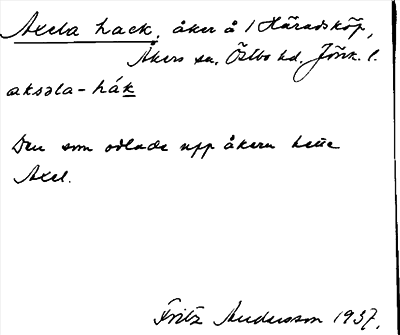 Axela hack, åker å 1 Häradsköp,
Åkers sn. Östbo hd. Jönk. l.
aksəla-hák
Den som odlade upp åkern hette
Axel.
Fritz Andersson 1937.